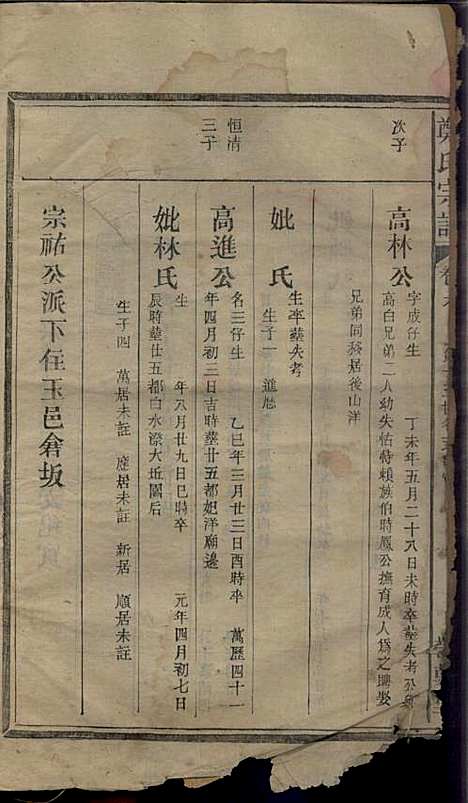 鄭氏宗譜
次子
高林公
字成仔生
丁未年五月二十八日未時卒塟失考公與
高白兄弟二人幼失怙特賴族伯時鳳公撫育成人爲之聘娶
兄弟同移居後山洋
妣 氏
生卒塟失考
生子一 進慰
恒清
三子
高進公
名三仔生
乙巳年三月廿三日酉時卒
萬歷四十一
年四月初二日吉時塟廿五都妃洋廟邊
妣林氏
生
年八月廿九日巳時卒
元年四月初七日
辰時塟廿五都白水漈大近閣后
生子四 萬居未註 應居未註 新居 順居未註
宗祐公派下住玉邑倉坂